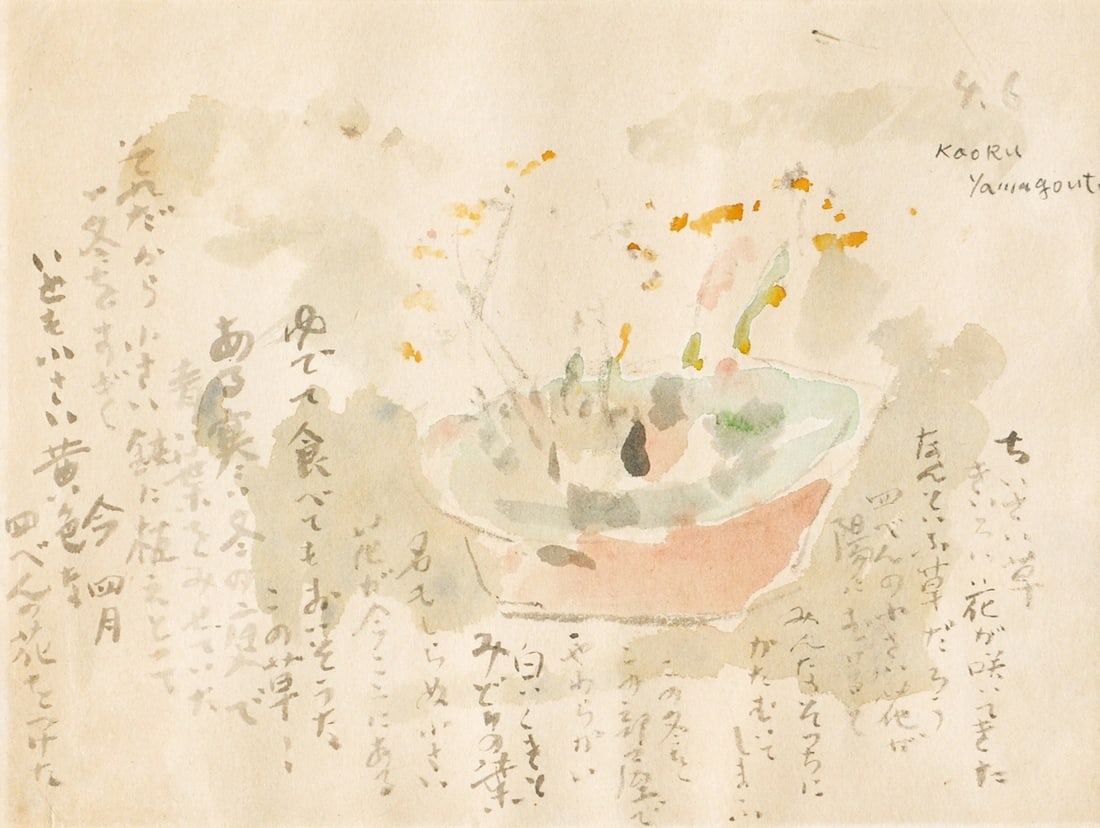 4.6
KaoRu
Yamagout
ちいさい草
きいろい花が咲いてきた
なんといふ草だろう
四べんの花が
陽にむけると
みんなそっちに
かたむいて
しまふ
この冬を
この部屋で
やわらかい
白いくきと
みどりの葉
名もしらぬ小さい
花が今ここにある
ゆでて食べてもおいそうだ
この草は
ある寒い冬の庭で
青い葉をみせていた
それだから小さい鉢に植えとって
冬をすごし
今四月
いとも小さい黄色な
四べんの花をつけた